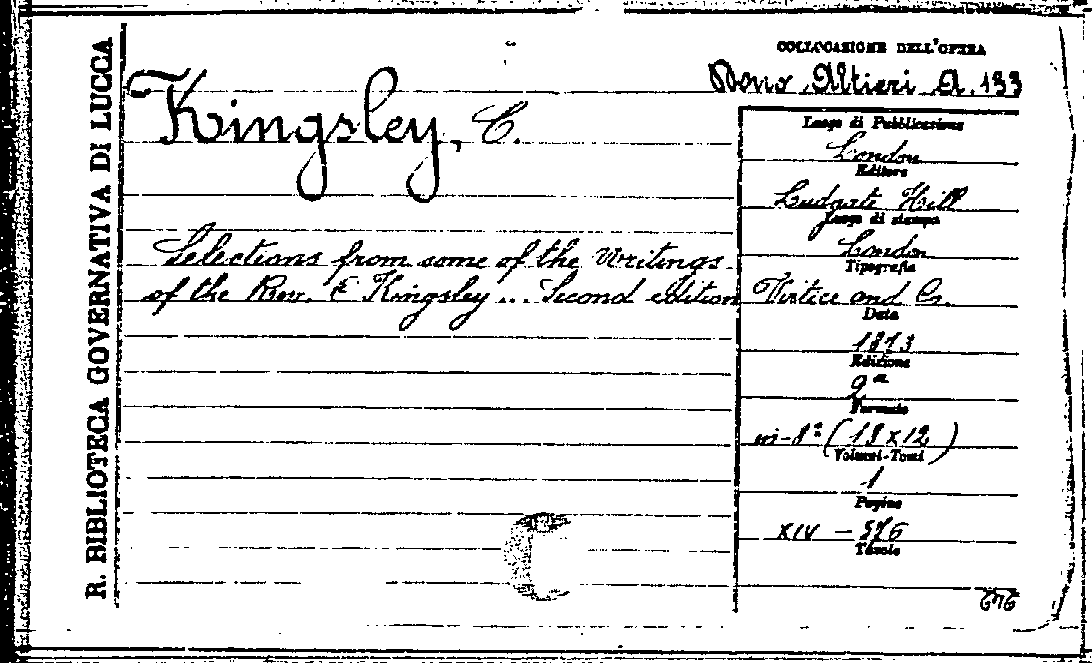 R. BIBLIOTECA GOVERNATIVA DI LUCCA
COLLOCAZIONE DELL'OPERA
Dono Altieri A. 133
Kingsley, C.
Selections from some of the Writings
of the Rev. C Kingsley... Second edition
Luogo di Pubblicazione
London
Editore
Ludgate Hill
Luogo di stampa
London
Tipografia
Virtue and Co.
Data
1873
Edizione
2ª
Formato
in-8º (18x12)
Volumi-Tomi
1
Pagine
XIV - 376
Tavole